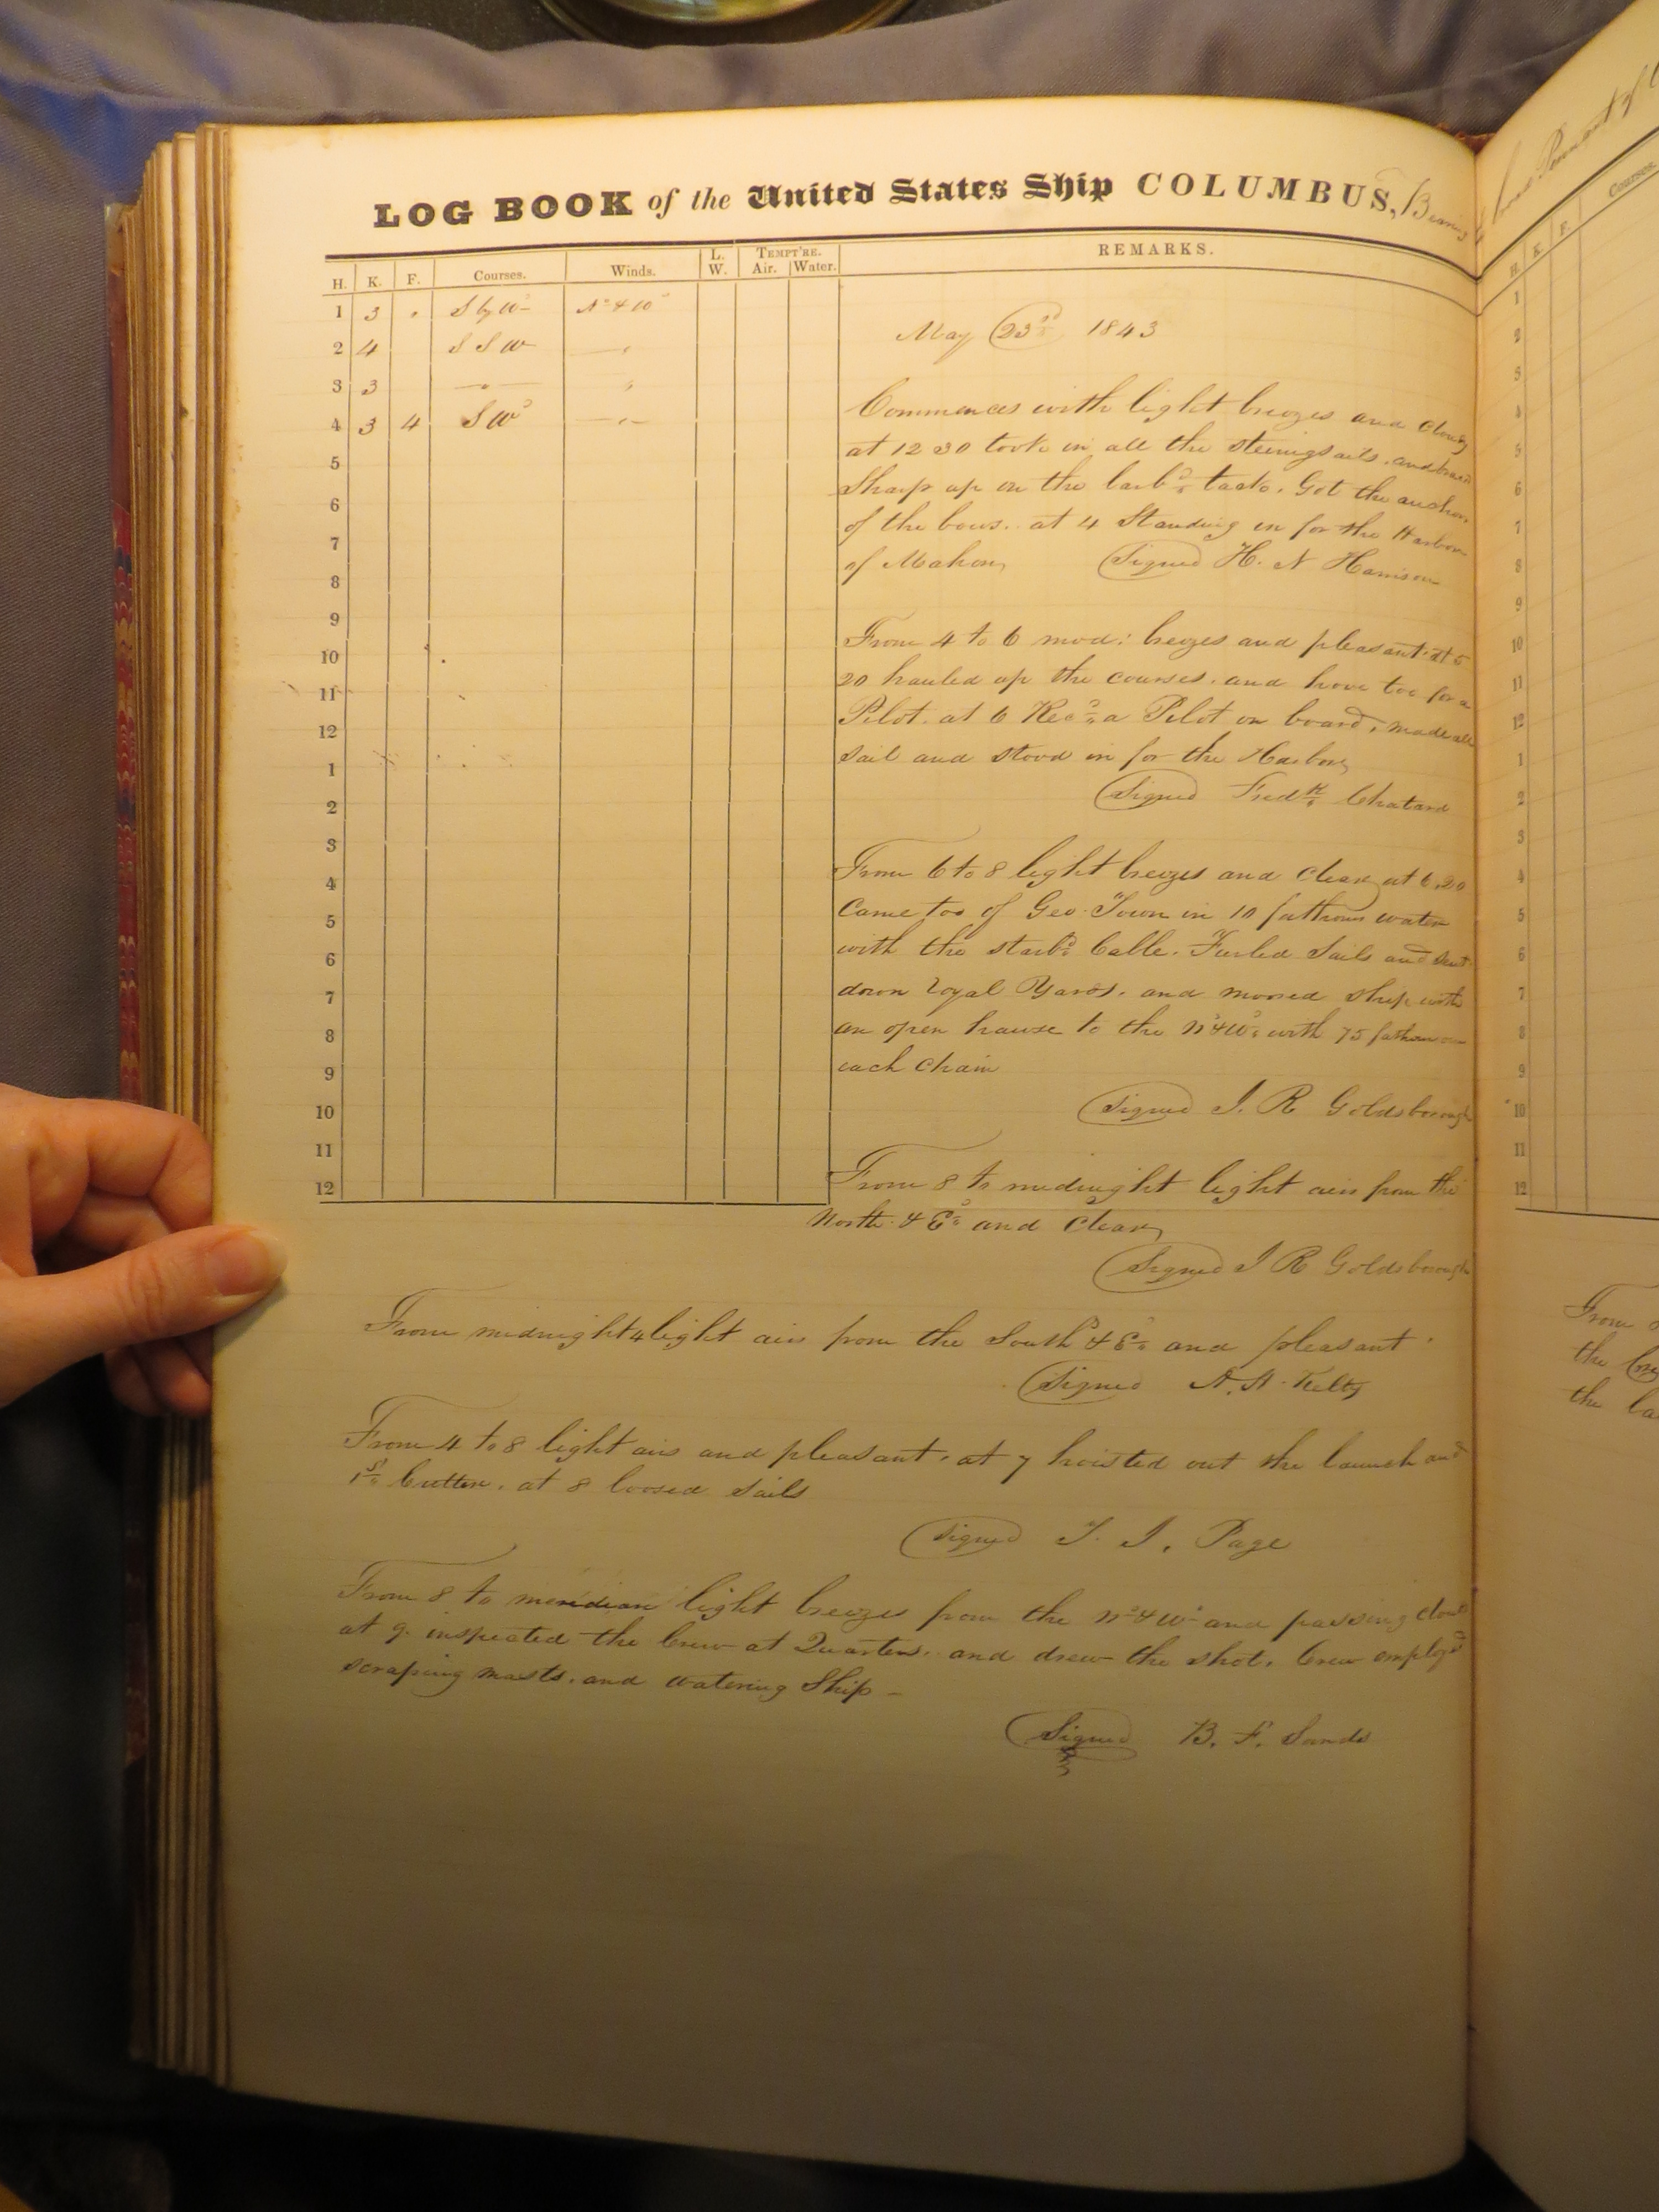 LOG BOOK of the United States Ship COLUMBUS, Bearing
H. K. F. Courses. Winds. L. W. TEMPT'RE. Air. Water. REMARKS.
1 3 " S by W N° & W°
2 4 S S W — "
3 3 — " — "
4 3 4 S W° — " —
5
6
7
8
9
10
11
12
1
2
3
4
5
6
7
8
9
10
11
12
May 23rd 1843
Commences with light breezes and cloudy
at 12 30 took in all the steeringsails. and braced
Sharp up on the larbd tack. Got the anchors
of the bows. at 4 Standing in for the Harbor
of Mahon,
(Signed H. N Harrison
From 4 to 6 mod: breezes and pleasant. at 5
20 hauled up the courses. and hove too for a
Pilot. at 6 Recd a Pilot on board, made all
sail and stood in for the Harbor,
(Signed Fredk Chatard
From 6 to 8 light breezes and Clear, at 6.20
Came too of Geo. Town in 10 fathoms water
with the starbd Cable. Furled Sails and sent
down royal Yards. and moored ship with
an open hawse to the N° & W° with 75 fathoms on
each Chain
(Signed J. R Goldsborough
From 8 to midnight light airs from the
North. & E° and Clear,
(Signed J R Goldsborough
From midnight 4 light airs from the South° & E° and pleasant.
(Signed A. H. Kelty
From 4 to 8 light airs and pleasant. at 7 hoisted out the launch and
1st Cutter. at 8 loosed sails
(Signed T. J. Page
From 8 to meridian light breezes from the N° & W° and passing clouds
at 9. inspected the Crew at Quarters. and drew the shot. Crew employd
scraping masts. and watering Ship —
(Signed B. F. Sands
Pennant of
H. K. F. Courses
1
2
3
4
5
6
7
8
9
10
11
12
1
2
3
4
5
6
7
8
9
10
11
12
From
the
the